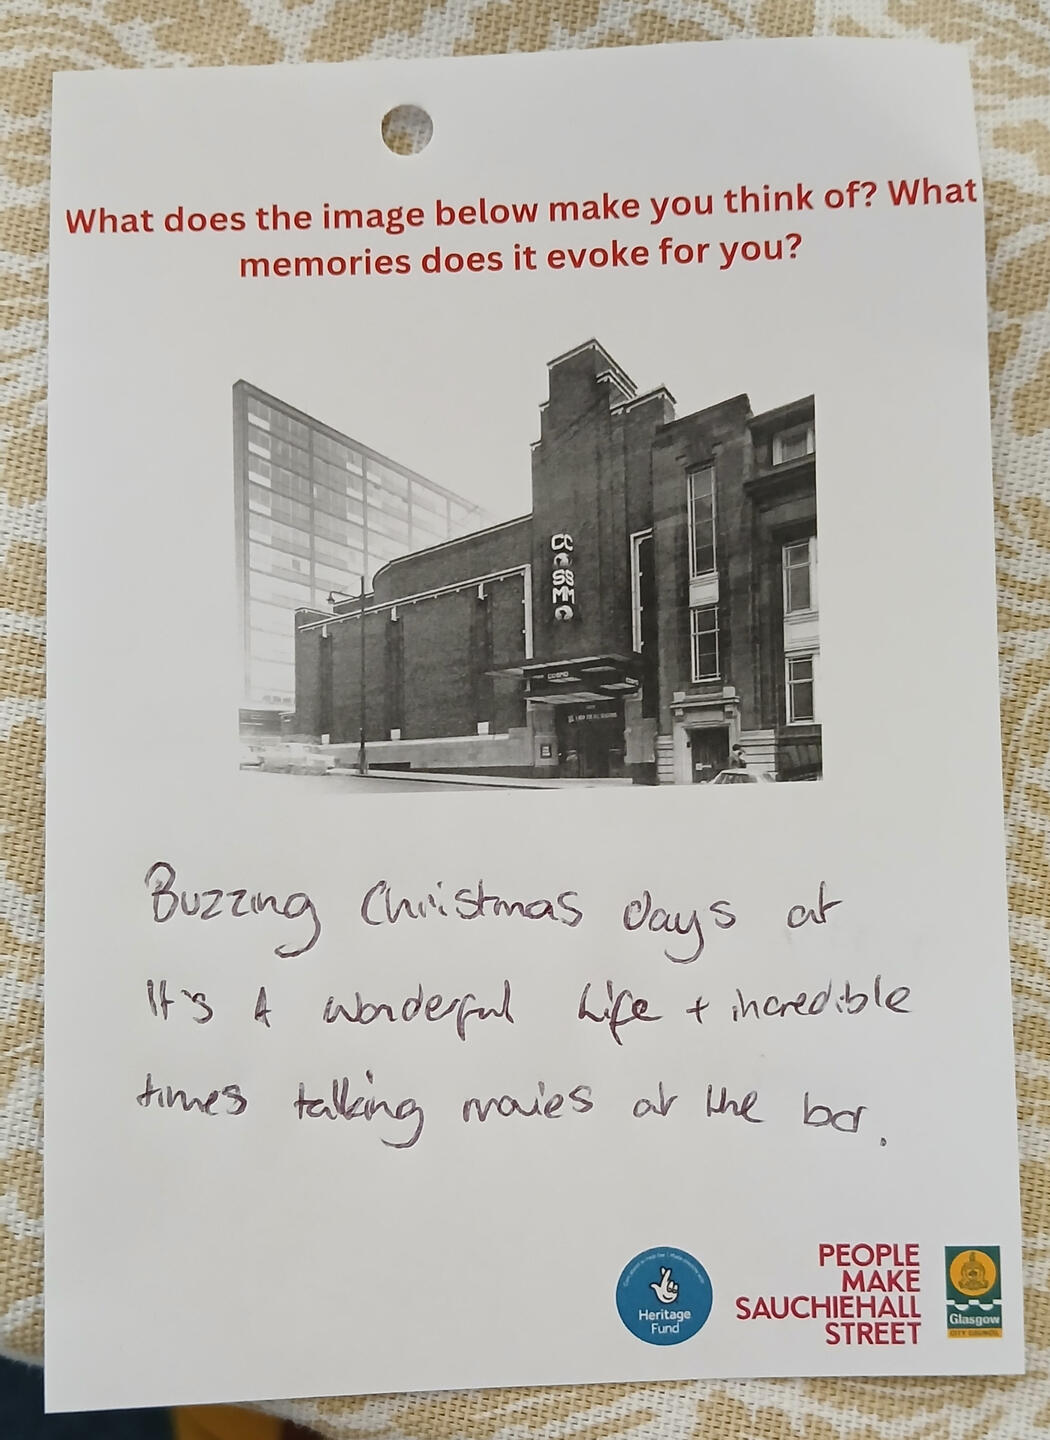 What does the image below make you think of? What
memories does it evoke for you?
COSMO
COSMO
Buzzing Christmas days at
It's A wonderful Life + incredible
times talking movies at the bar.
Heritage
Fund
PEOPLE
MAKE
SAUCHIEHALL
STREET
Glasgow
CITY COUNCIL